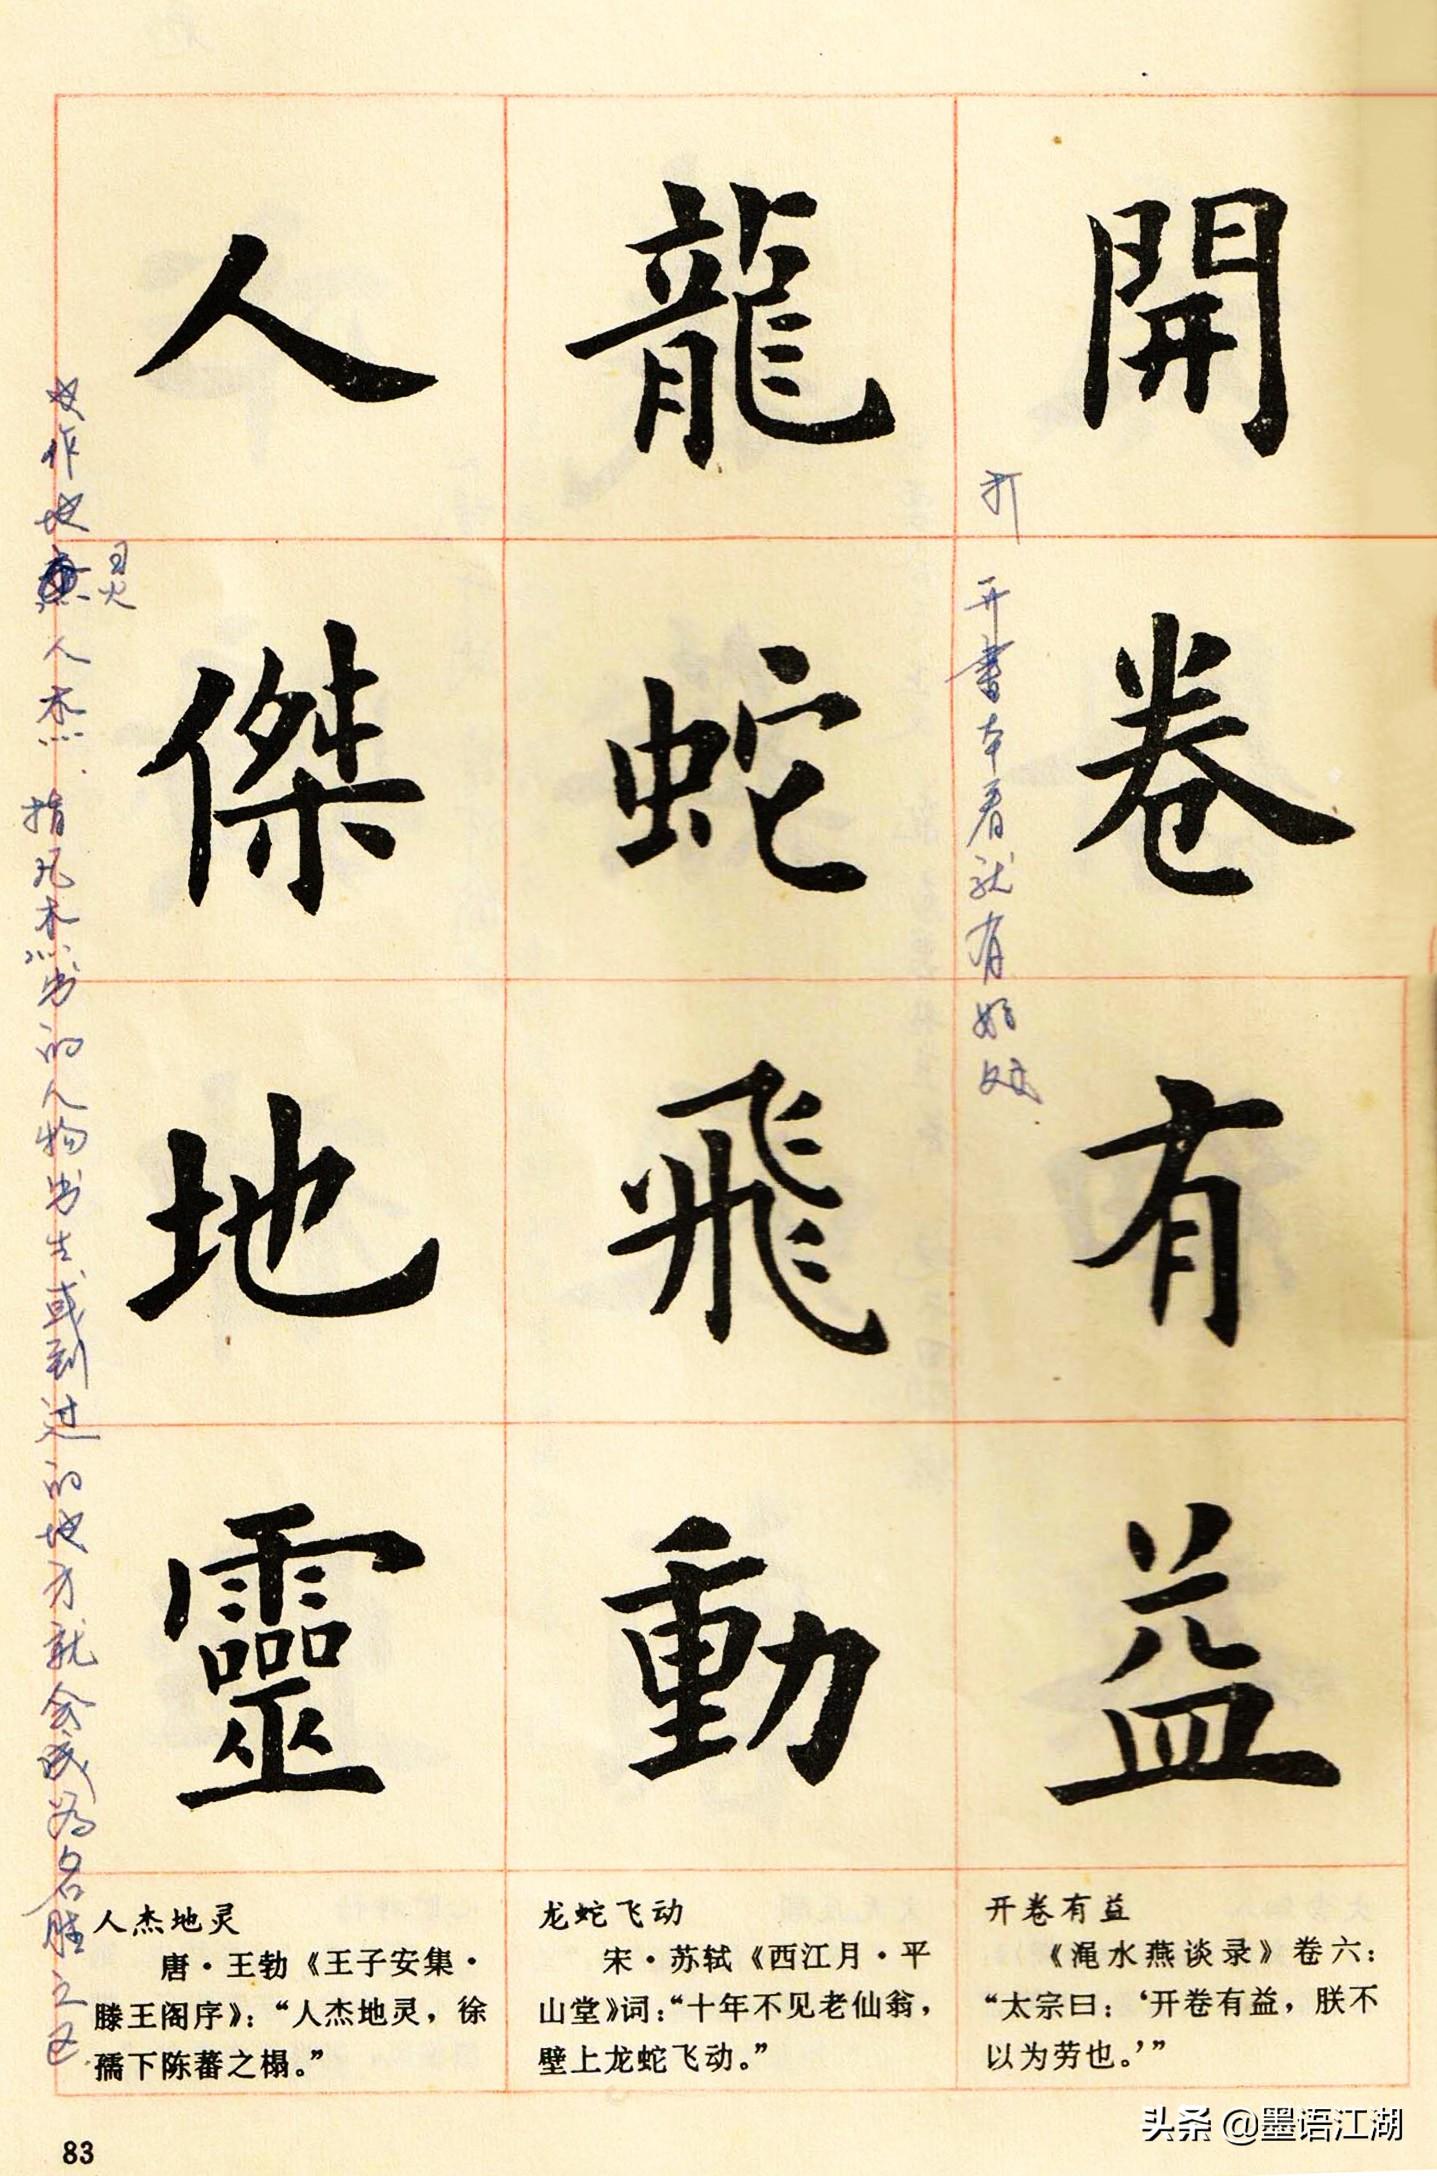 開卷有益
打开书本看就有好处
龍蛇飛動
人傑地靈
又作地灵人杰.指凡杰出的人物出生或到过的地方就会成为名胜之区.
开卷有益
《渑水燕谈录》卷六：
“太宗曰：‘开卷有益，朕不
以为劳也。’”
龙蛇飞动
宋·苏轼《西江月·平
山堂》词：“十年不见老仙翁，
壁上龙蛇飞动。”
人杰地灵
唐·王勃《王子安集·
滕王阁序》：“人杰地灵，徐
孺下陈蕃之榻。”
83
头条 @墨语江湖